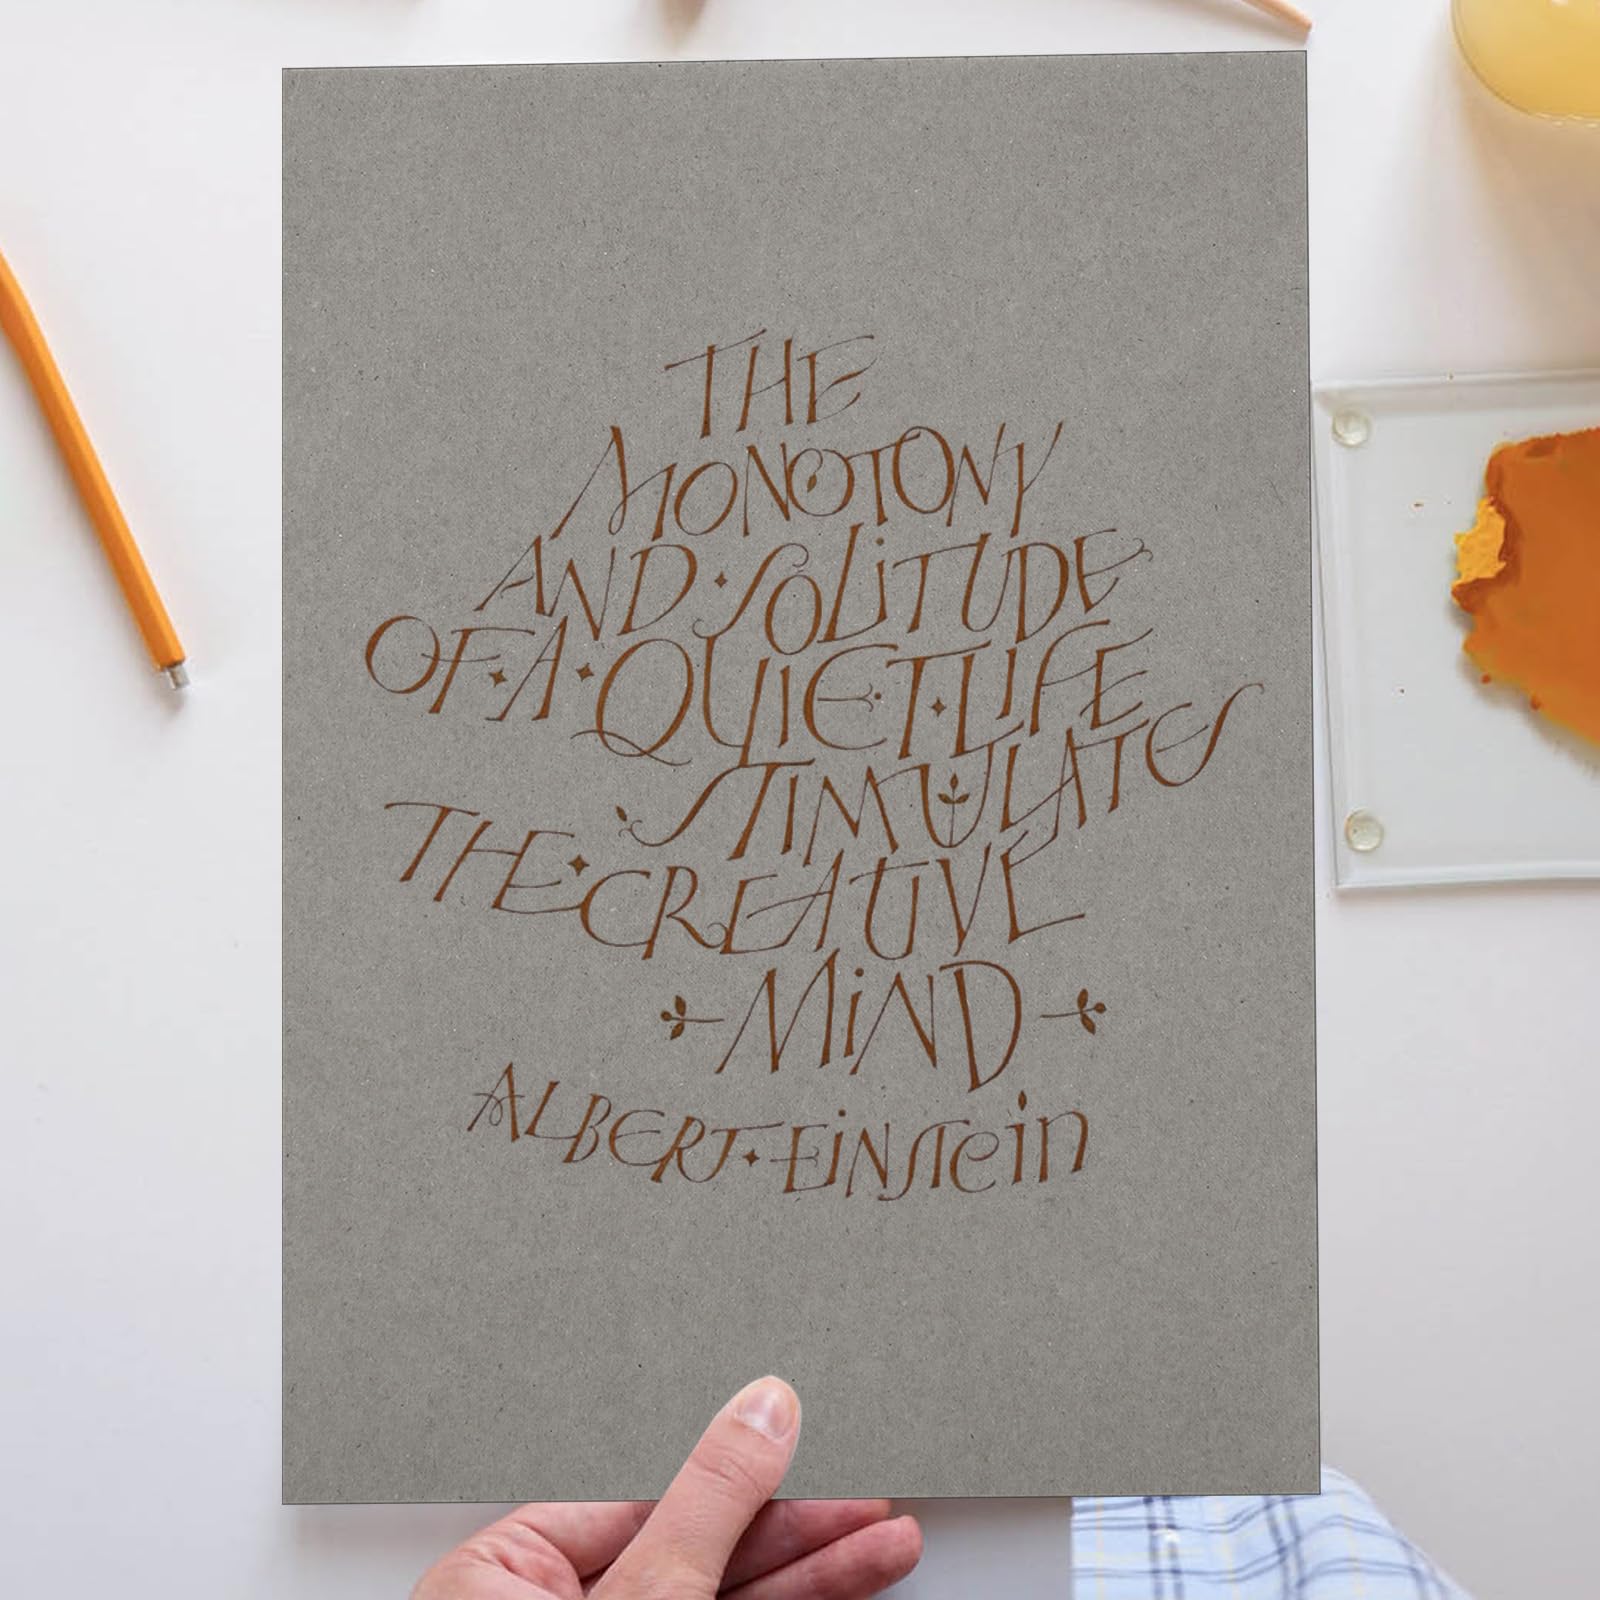 THE
MONOTONY
AND · SOLITUDE
OF · A · QUIET · LIFE
STIMULATES
THE · CREATIVE
MiND
ALBERT · EiNSTein